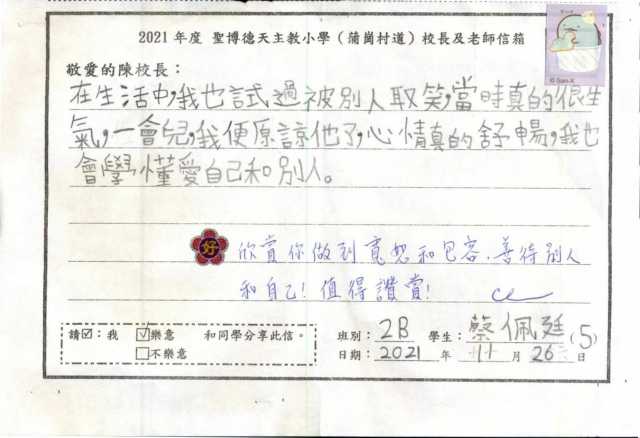 2021 年度 聖博德天主教小學（蒲崗村道）校長及老師信箱
敬愛的陳校長：
在生活中,我也試過被別人取笑,當時真的很生
氣,一會兒,我便原諒他了,心情真的舒暢,我也
會學懂愛自己和別人。
好
欣賞你做到寬恕和包容,善待別人
和自己!值得讚賞!
請☑：我 ☑樂意 和同學分享此信。
□不樂意
班別：2B 學生：蔡佩廷(5)
日期：2021 年 11 月 26 日